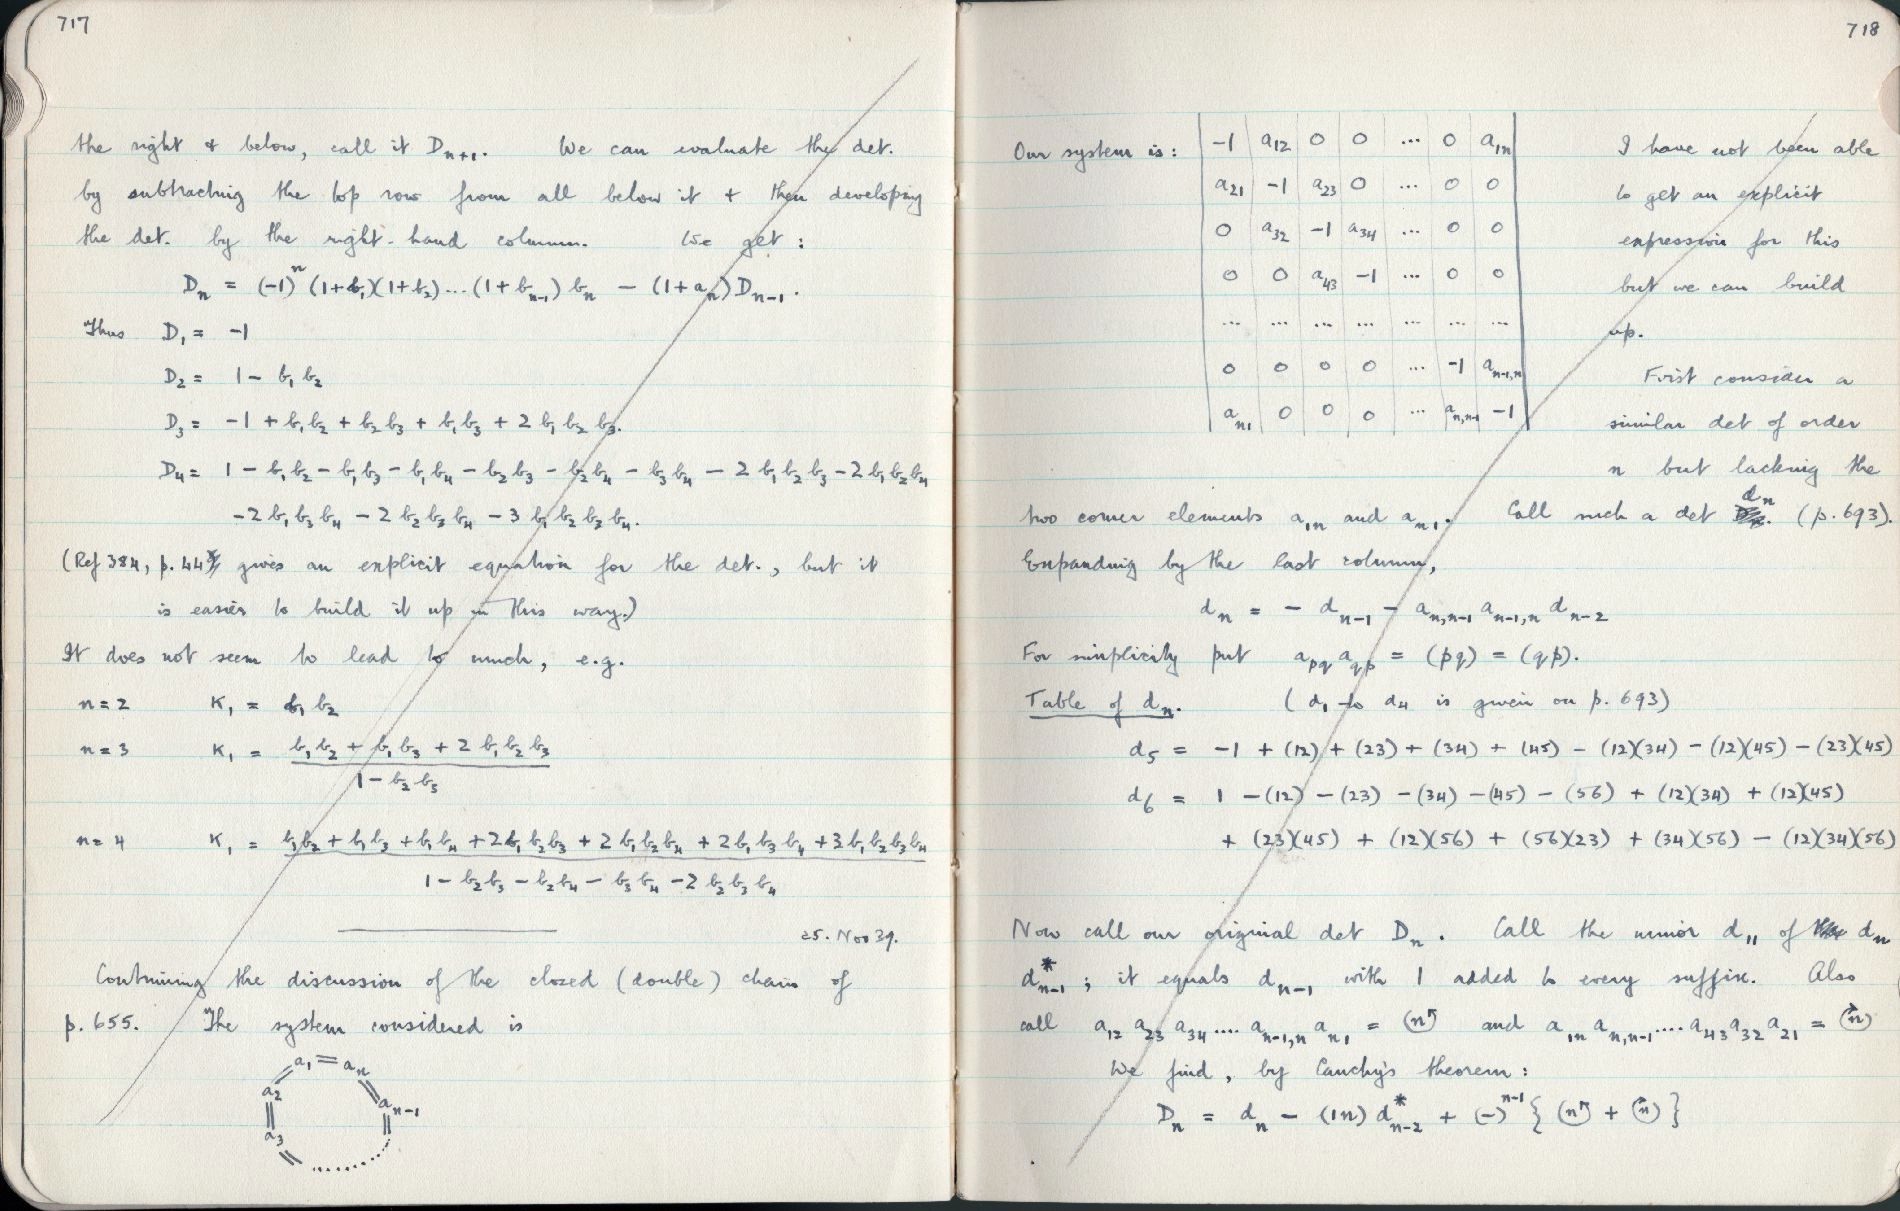 717
the right & below, call it Dₙ₊₁. We can evaluate the det.
by subtracting the top row from all below it + then developing
the det. by the right-hand column. We get:
Dₙ = (-1)ⁿ (1+b₁)(1+b₂)...(1+bₙ₋₁) bₙ - (1+aₙ) Dₙ₋₁.
Thus D₁ = -1
D₂ = 1 - b₁ b₂
D₃ = -1 + b₁b₂ + b₂b₃ + b₁b₃ + 2 b₁ b₂ b₃.
D₄ = 1 - b₁b₂ - b₁b₃ - b₁b₄ - b₂b₃ - b₂b₄ - b₃b₄ - 2 b₁b₂b₃ - 2 b₁b₂b₄
-2 b₁b₃b₄ - 2 b₂b₃b₄ - 3 b₁b₂b₃b₄.
(Ref 384, p. 44 gives an explicit equation for the det., but it
is easier to build it up in this way.)
It does not seem to lead to much, e.g.
n=2 K₁ = b₁ b₂
n=3 K₁ = b₁b₂ + b₁b₃ + 2 b₁b₂b₃
1 - b₂b₃
n=4 K₁ = b₁b₂ + b₁b₃ + b₁b₄ + 2b₁b₂b₃ + 2 b₁b₂b₄ + 2b₁b₃b₄ + 3b₁b₂b₃b₄
1 - b₂b₃ - b₂b₄ - b₃b₄ - 2 b₂b₃b₄
25. Nov 39.
Continuing the discussion of the closed (double) chain of
p. 655. The system considered is
a₁ = aₙ
a₂ aₙ₋₁
a₃
718
Our system is:
-1 a₁₂ 0 0 ... 0 a₁ₙ
a₂₁ -1 a₂₃ 0 ... 0 0
0 a₃₂ -1 a₃₄ ... 0 0
0 0 a₄₃ -1 ... 0 0
... ... ... ... ... ... ...
0 0 0 0 ... -1 aₙ₋₁,ₙ
aₙ₁ 0 0 0 ... aₙ,ₙ₋₁ -1
I have not been able
to get an explicit
expression for this
but we can build
up.
First consider a
similar det of order
n but lacking the
two corner elements a₁ₙ and aₙ₁. Call such a det dₙ (p. 693).
Expanding by the last column,
dₙ = - dₙ₋₁ - aₙ,ₙ₋₁ aₙ₋₁,ₙ dₙ₋₂
For simplicity put a_pq a_qp = (pq) = (qp).
Table of dₙ. (d₁ to d₄ is given on p. 693)
d₅ = -1 + (12) + (23) + (34) + (45) - (12)(34) - (12)(45) - (23)(45)
d₆ = 1 - (12) - (23) - (34) - (45) - (56) + (12)(34) + (12)(45)
+ (23)(45) + (12)(56) + (56)(23) + (34)(56) - (12)(34)(56)
Now call our original det Dₙ. Call the minor d₁₁ of dₙ
d*ₙ₋₁; it equals dₙ₋₁ with 1 added to every suffix. Also
call a₁₂ a₂₃ a₃₄ .... aₙ₋₁,ₙ aₙ₁ = (n↰) and a₁ₙ aₙ,ₙ₋₁ .... a₄₃ a₃₂ a₂₁ = (↱n)
We find, by Cauchy's theorem:
Dₙ = dₙ - (1n) d*ₙ₋₂ + (-)ⁿ⁻¹ { (n↰) + (↱n) }